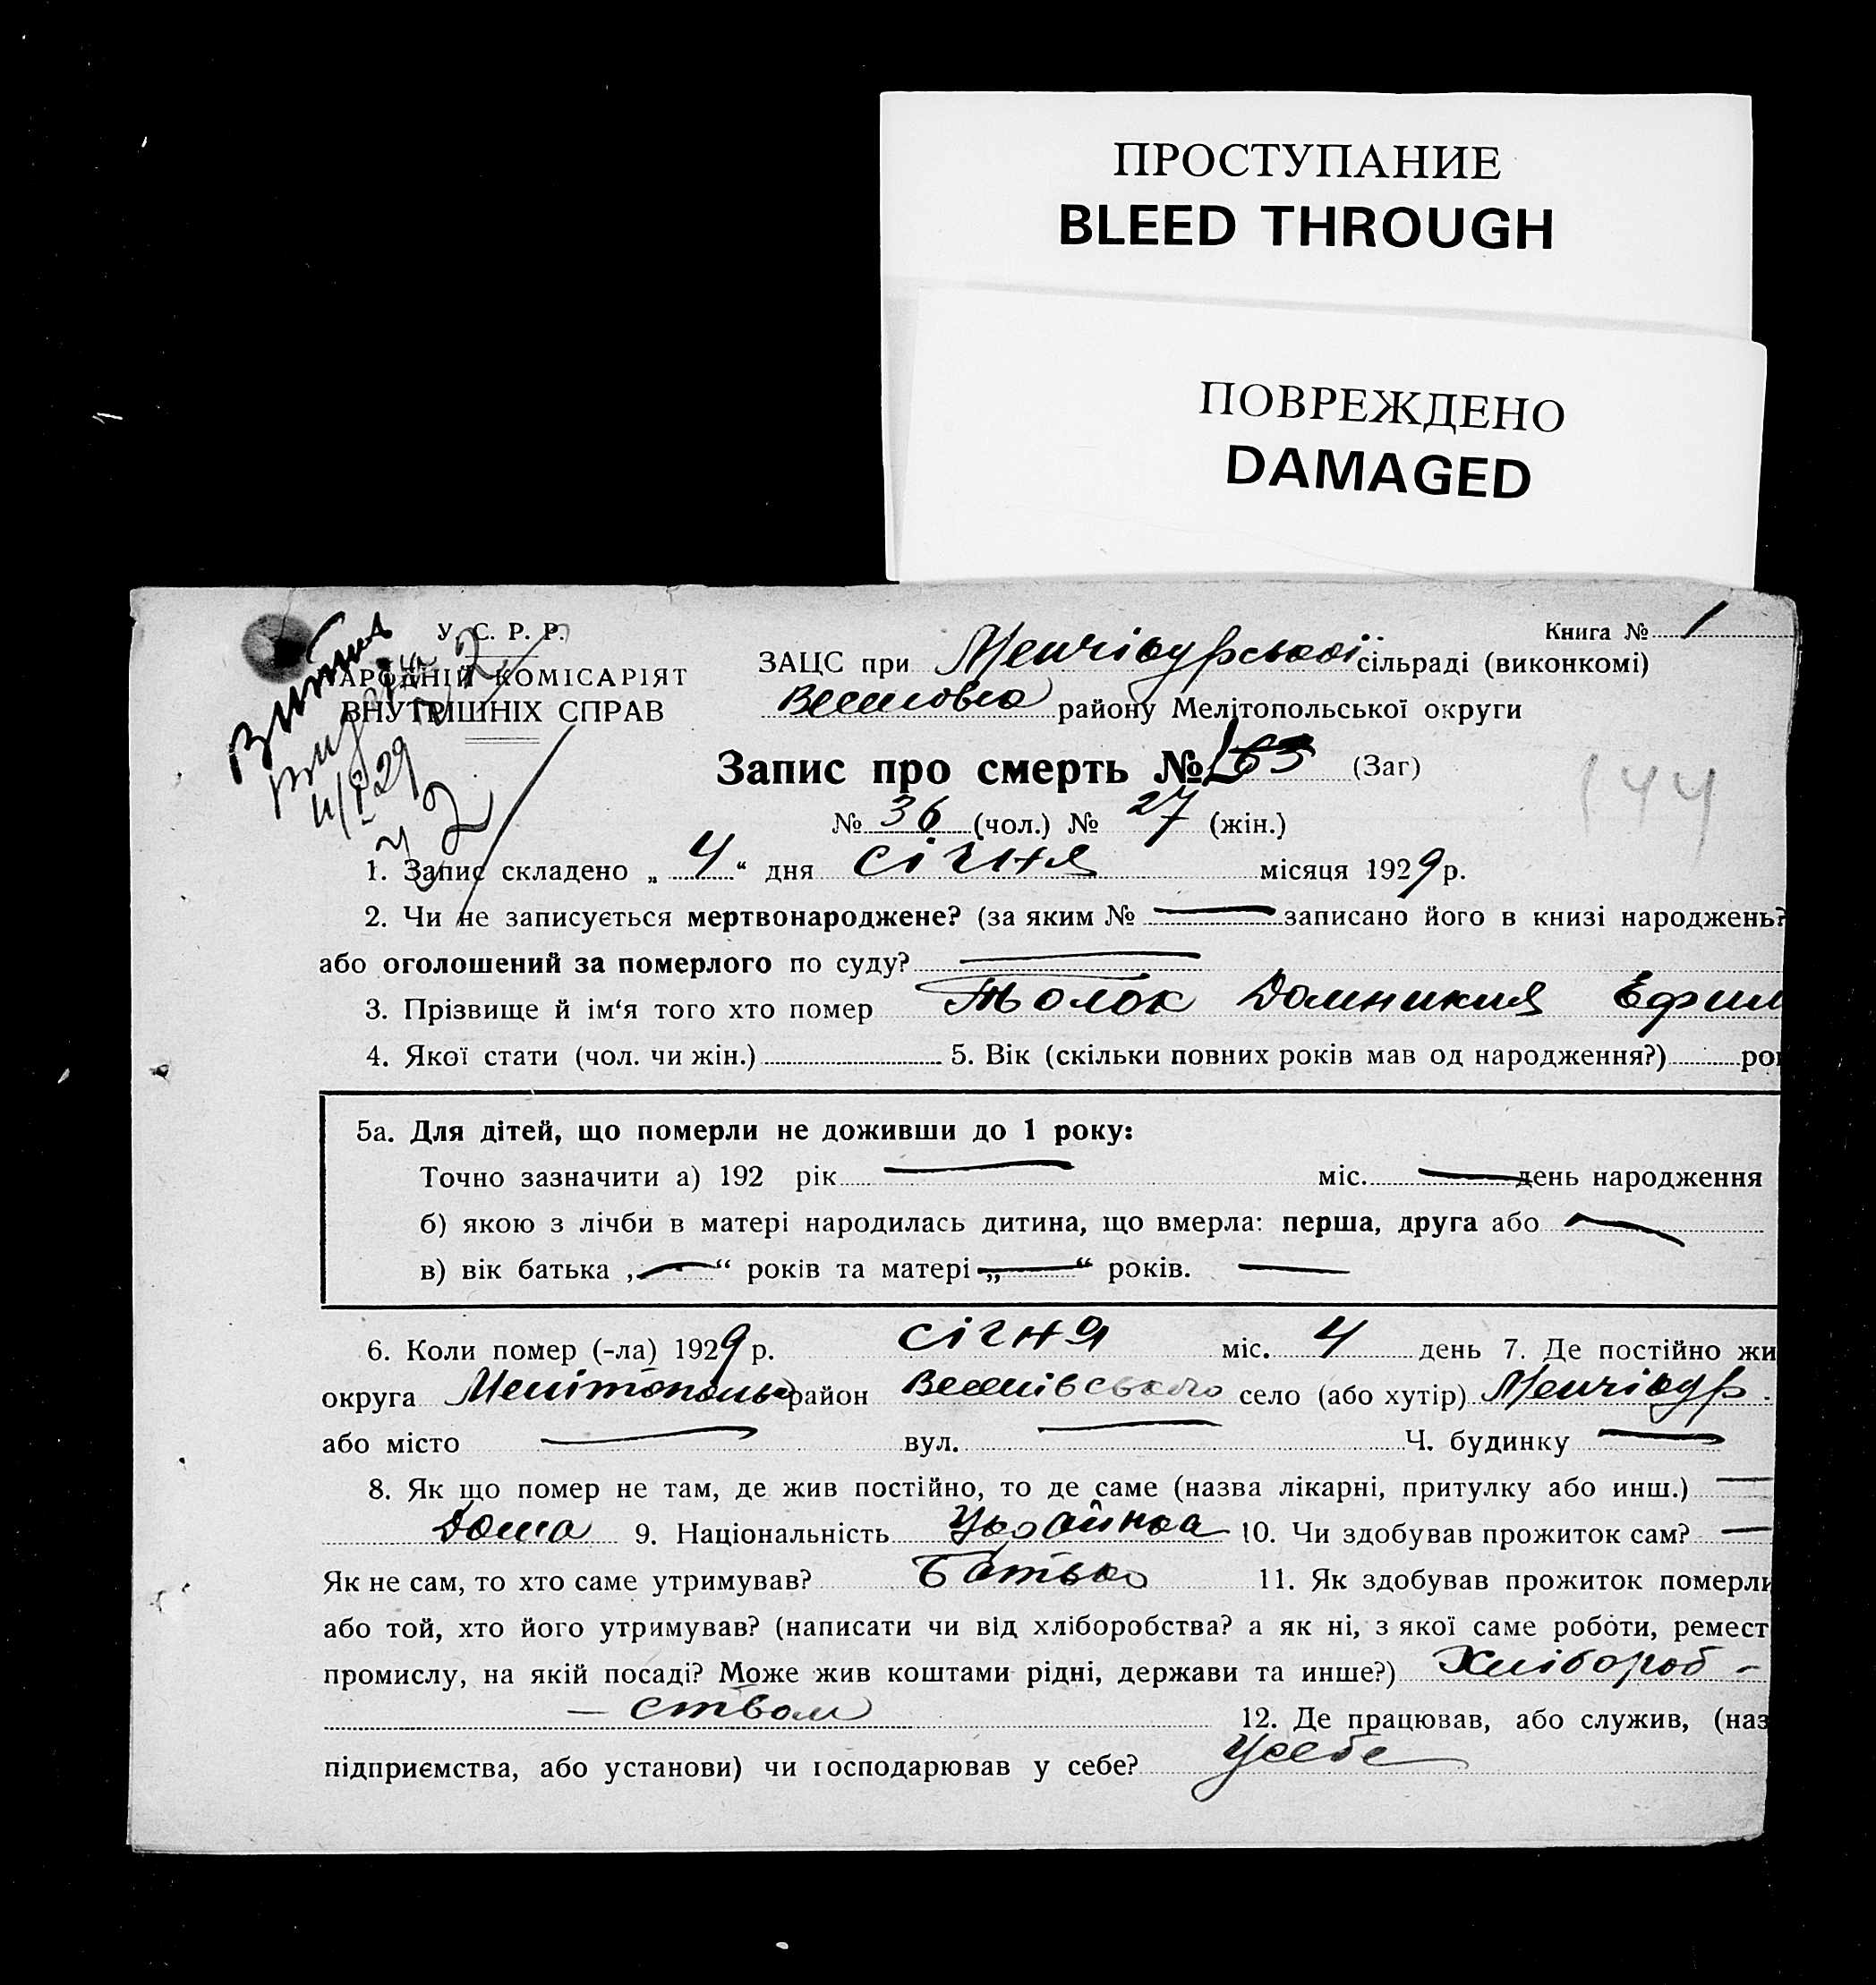 ПРОСТУПАНИЕ
BLEED THROUGH
ПОВРЕЖДЕНО
DAMAGED
У. С. Р. Р.
НАРОДНІЙ КОМІСАРІЯТ
ВНУТРІШНІХ СПРАВ
Витяг
4/I 29
Книга № 1
ЗАЦС при Менчікурської сільраді (виконкомі)
району Мелітопольської округи
Запис про смерть № 63 (Заг)
144
№ 36 (чол.) № 27 (жін.)
1. Запис складено „ 4 “ дня січня місяця 1929 р.
2. Чи не записується мертвонароджене? (за яким № — записано його в книзі народжень?
або оголошений за померлого по суду? —
3. Прізвище й ім‘я того хто помер Толок Домникия Ефим
4. Якої стати (чол. чи жін.) 5. Вік (скільки повних років мав од народження?) ро
5а. Для дітей, що померли не доживши до 1 року:
Точно зазначити а) 192 рік — міс. — день народження
б) якою з лічби в матері народилась дитина, що вмерла: перша, друга або —
в) вік батька „ — “ років та матері „ — “ років. —
6. Коли помер (-ла) 1929 р. січня міс. 4 день 7. Де постійно жи
округа Мелітополь район Веселівського село (або хутір) Менчікур
або місто — вул. — Ч. будинку —
8. Як що помер не там, де жив постійно, то де саме (назва лікарні, притулку або инш.) —
Дома 9. Національність Українка 10. Чи здобував прожиток сам? —
Як не сам, то хто саме утримував? Батько 11. Як здобував прожиток померли
або той, хто його утримував? (написати чи від хліборобства? а як ні, з якої саме роботи, ремест
промислу, на якій посаді? Може жив коштами рідні, держави та инше?) Хлібороб -
— ством 12. Де працював, або служив, (наз
підприємства, або установи) чи господарював у себе? У себе